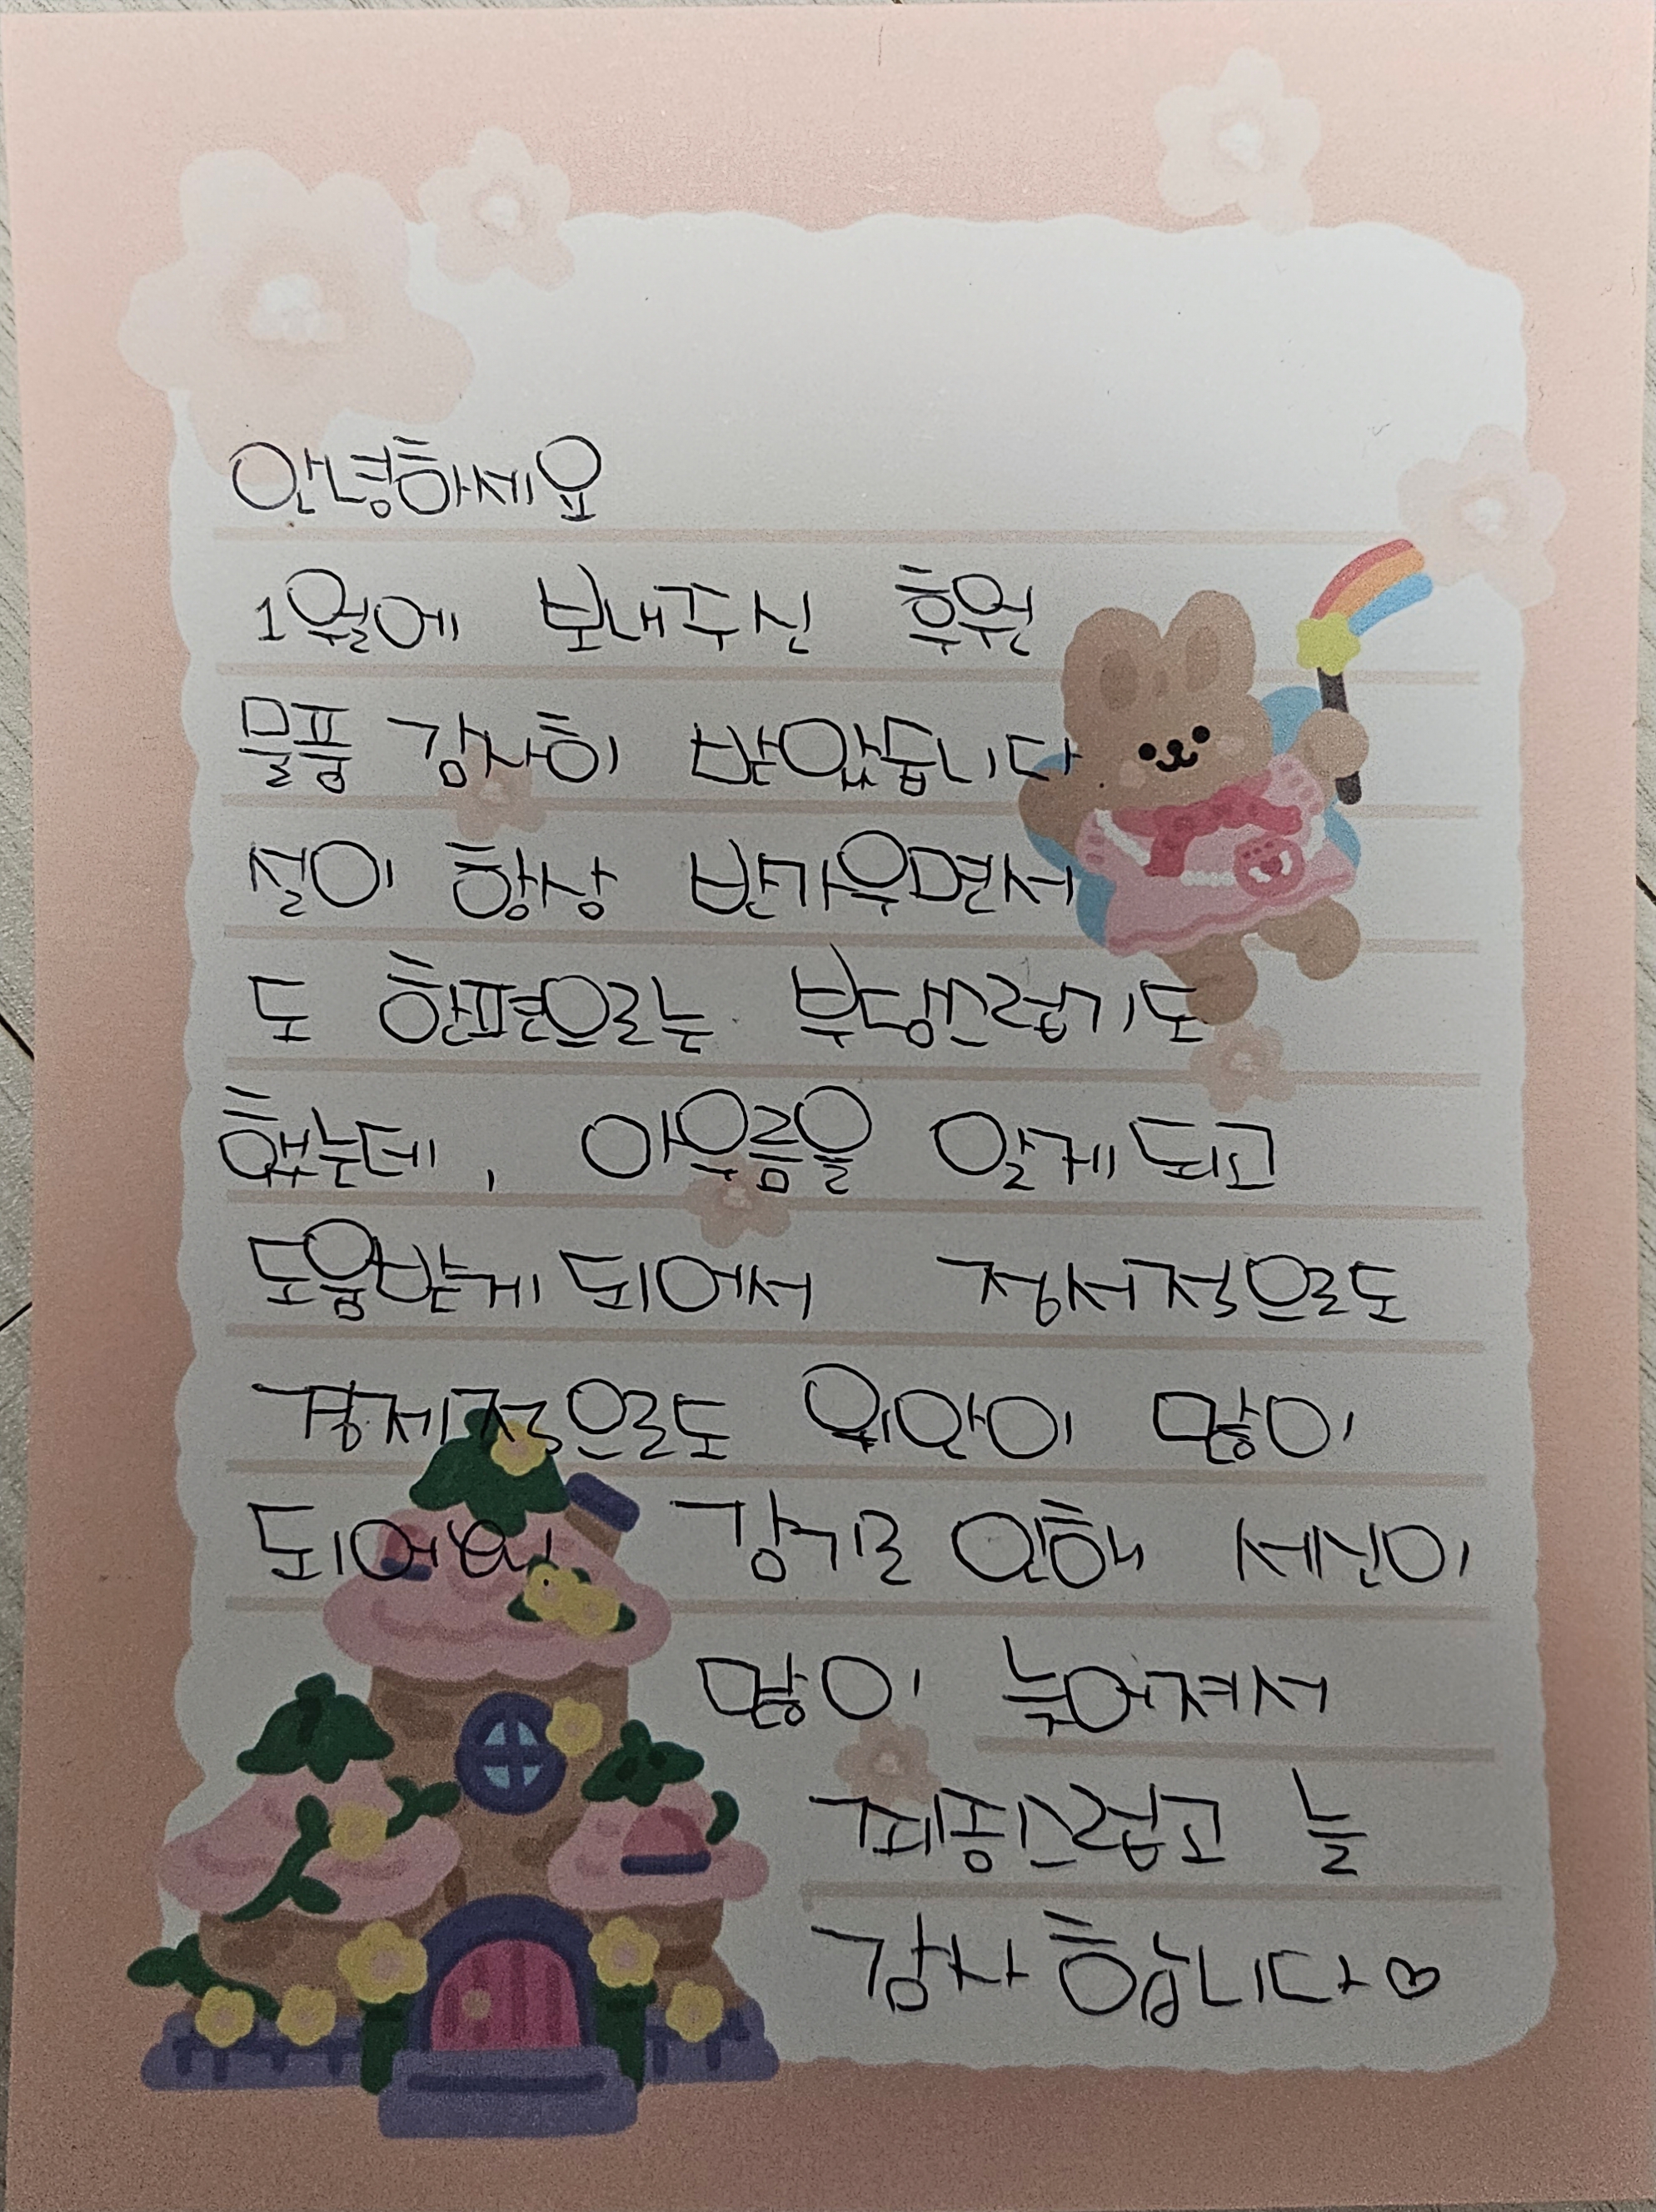 안녕하세요
1월에 보내주신 후원
물품 감사히 받았습니다
설이 항상 반가우면서
도 한편으로는 부담스럽기도
했는데, 아우름을 알게되고
도움받게 되어서 정서적으로도
경제적으로도 위안이 많이
되어요 감기로 인해 세신이
많이 늦어져서
죄송스럽고 늘
감사합니다♡